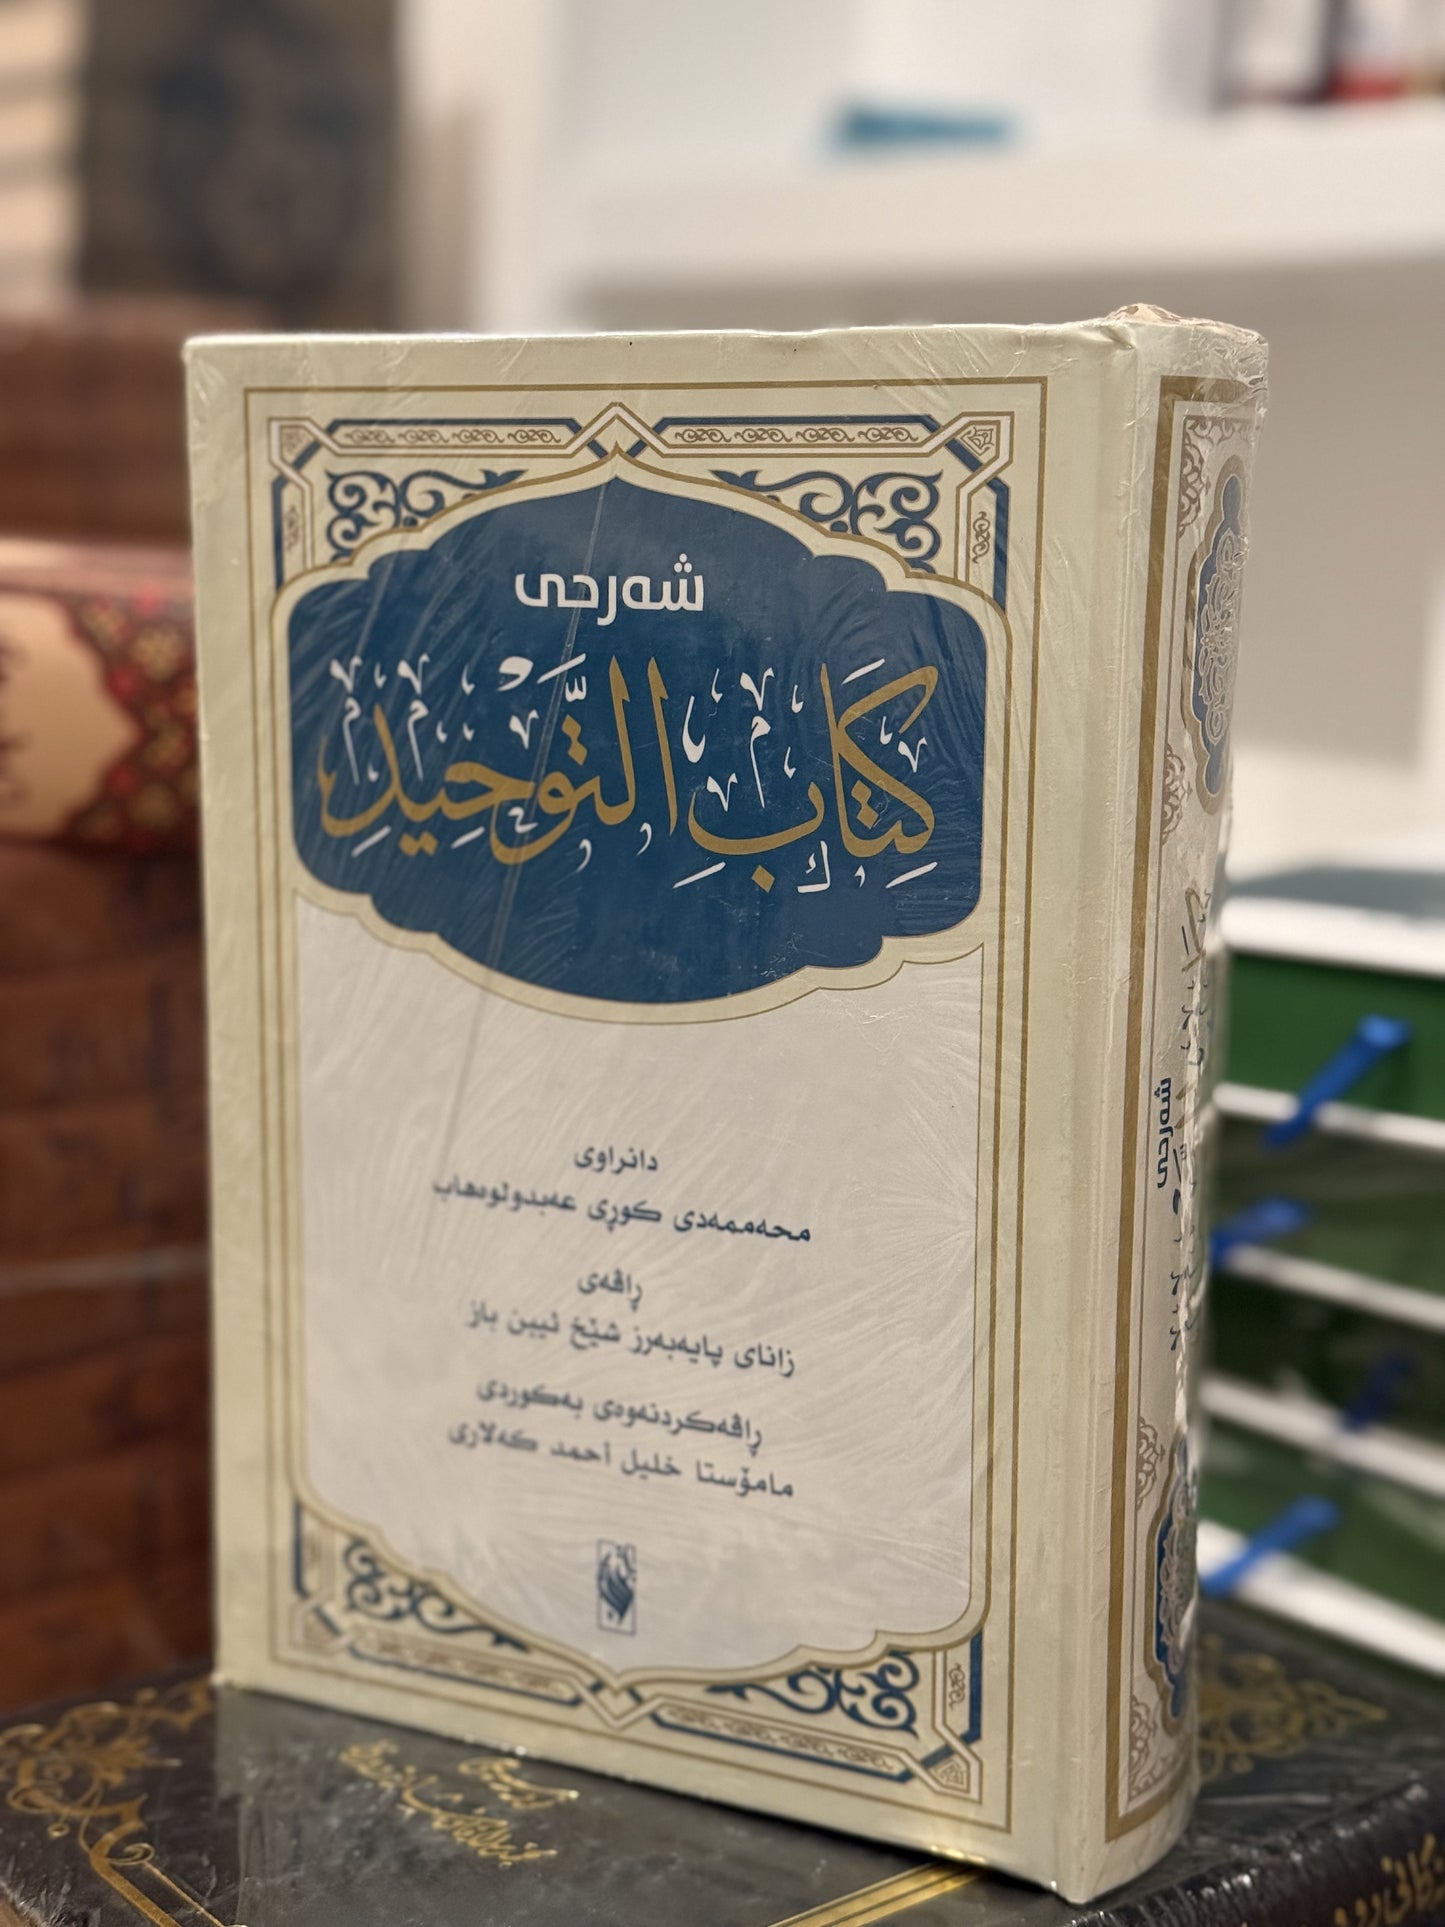 شەرحی
كِتَابِ التَّوْحِيدِ
دانراوی
محەممەدی کوڕی عەبدولوەهاب
ڕاڤەی
زانای پایەبەرز شێخ ئیبن باز
ڕاڤەکردنەوەی بەکوردی
مامۆستا خلیل أحمد کەلاری
شەرحی